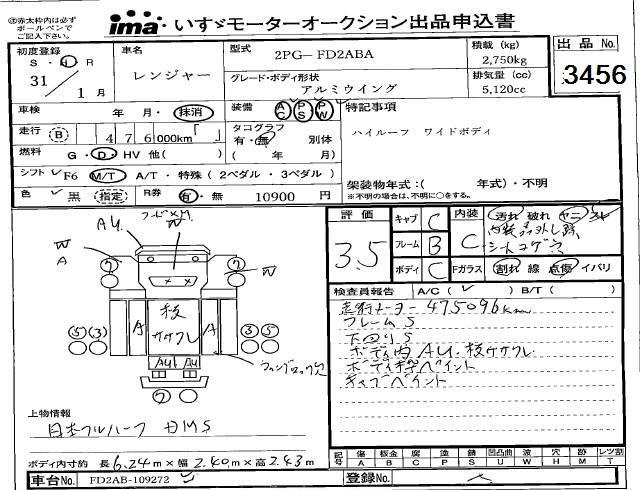 ③赤太枠内は必ず
ボールペンで
ご記入下さい。
ima® いすゞモーターオークション出品申込書
初度登録
S・H R
31
1月
車名
レンジャー
型式
2PG－FD2ABA
グレード・ボディ形状
アルミウイング
積載(kg)
2,750kg
排気量(cc)
5,120cc
出品No.
3456
車検 年 月・抹消
装備 AC PS PW
走行 B 4 7 6 000km
タコグラフ
有・無 別体
(年 月)
特記事項
ハイルーフ ワイドボディ
燃料 G・D・HV 他( )
シフト F6 M/T・A/T・特殊(2ペダル・3ペダル)
架装物年式:( 年式)・不明
※不明の場合は、不明に○をする。
色 黒 指定
R券 有・無 10900 円
評価
3.5
キャブ C
フレーム B
ボディ C
内装 C
汚れ 破れ ヤニ
Fガラス 割れ 線 点傷 イバリ
検査員報告 A/C( ) B/T( )
走行メーター475096km
フレームS
下回りS
ボディ内AU.板ササクレ
ボディ枠ペイント
キャブペイント
AU.
W
W
A
W
⑦ ⑦
⑤ ③ ③ ⑤
A 板 A
ササクレ
AU AU
⑦
上物情報
日本フルハーフ DMS
ボディ内寸約 長6.24m×幅2.40m×高2.43m
記号 A 傷 B 板金 C 腐 P 塗 S 錆 U 凹凸曲 W 波 X H M T レンズ割
車台No. FD2AB-109272
登録No.